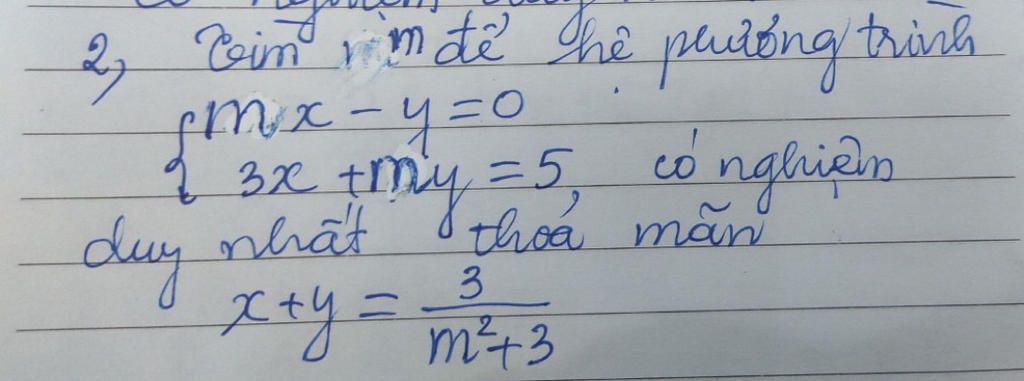 2, Tìm m để hệ phương trình
{ mx - y = 0
3x + my = 5, có nghiệm
duy nhất thoả mãn
x + y = 3/(m² + 3)